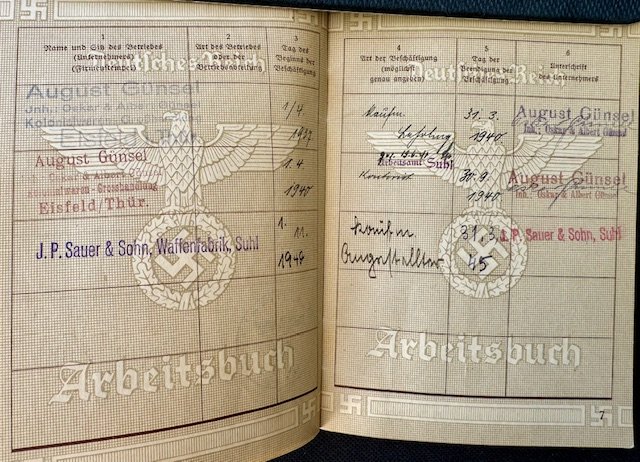 1
Name und Sitz des Betriebes
(Unternehmers)
(Firmenstempel)
2
Art des Betriebes
oder der
Betriebsabteilung
3
Tag des
Beginns der
Beschäftigung
Deutsches Reich
August Günsel
Inh. Oskar & Albert Günsel
Kolonialwaren-Großhandlung
Eisfeld/Thür.
1/4.
1937
August Günsel
Eisfeld/Thür.
1.4
1940
J. P. Sauer & Sohn, Waffenfabrik, Suhl
1.
11.
Arbeitsbuch
4
Art der Beschäftigung
(möglichst
genau angeben)
5
Tag der
Beendigung der
Beschäftigung
6
Unterschrift
des Unternehmers
Deutsches Reich
kaufm.
Lehrling
31.3.
1940
August Günsel
Inh.: Oskar & Albert Günsel
Arbeitsamt Suhl
Kontorist
30.9.
1940
August Günsel
Inh.: Oskar & Albert Günsel
kaufm.
Angestellter
31.3.
45
J. P. Sauer & Sohn, Suhl
Arbeitsbuch
7